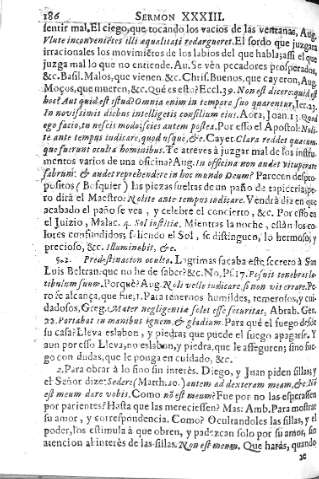 186 SERMON XXXIII.
sentir mal. El ciego, que tocando los vacios de las ventanas, Aug.
Vlute inconveniētes illi aqualitati redargueret. El sordo que juzgara
irracionales los movimiētos de los labios del que habla; assi el que
juzga mal lo que no entiende. Au. Se vèn pecadores prosperados,
&c. Basil. Malos, que vienen. &c. Chris. Buenos, que cayeron, Aug.
Moços, que mueren, &c. Què es esto? Eccl. 39. Non est dicere: quid est
hoc? Aut quid est istud? Omnia enim in tempore suo quærentur, Jer. 23.
In novissimis diebus intelligetis consilium eius. Aora, Joan. 13. Quod
ego facio, tu nescis modò, scies autem postea. Por esso el Apostol: Nolite
ante tempus iudicare, quoadusque, &c. Cayet. Clara reddet quacum-
que fuerunt oculta hominibus. Te atreves à juzgar mal de los instru-
mentos varios de una oficina? Aug. In officina non audet vituperare
fabrum: & audet reprehendere in hoc mundo Deum? Parecen despro-
positos (Besquier) las piezas sueltas de un paño de tapiceria; pe-
ro dirà el Maestro: Nolite ante tempus iudicare. Vendrà dia en que
acabado el paño se vea, y celebre el concierto, &c. Por esso es
el Juizio, Malac. 4. Sol iustitiæ. Mientras la noche, estàn los co-
lores confundidos, saliendo el Sol, se distinguen, lo hermoso, y
precioso, &c. Illuminabit, &c.
§. 2. Predestinacion oculta. Lagrimas sacaba este secreto à San
Luis Beltran: que no he de saber? &c. No, Ps. 17. Posuit tenebras la-
tibulum suum. Porquè? Aug. Noli velle iudicare, si non vis errare. Pe-
ro se alcança, que fue, 1. Para tenernos humildes, temerosos, y cui-
dadosos, Greg. Mater negligentiæ solet esse securitas, Abrah. Gen.
22. Portabat in manibus ignem & gladium. Para què el fuego desde
su casa? Lleva eslabon, y piedra; que puede el fuego apagarse. Y
aun por esso lleva, no eslabon, y piedra, que le asseguren; sino fue-
go con dudas, que le ponga en cuidado, &c.
2. Para obrar à lo fino sin interès. Diego, y Juan piden sillas, y
el Señor dize: Sedere (Matth. 20.) autem ad dexteram meam, &c. Nō
est meum dare vobis. Como nō est meum? Fue por no las esperassen
por parientes? Hasta que las mereciessen? Mas: Amb. Para mostrar
su amor, y correspondencia. Como? Ocultandoles las sillas, y el
poder, los estimula à que obren, y padezcan solo por su amor, sin
atencion al interès de las sillas. Non est meum. Què haràs, quando